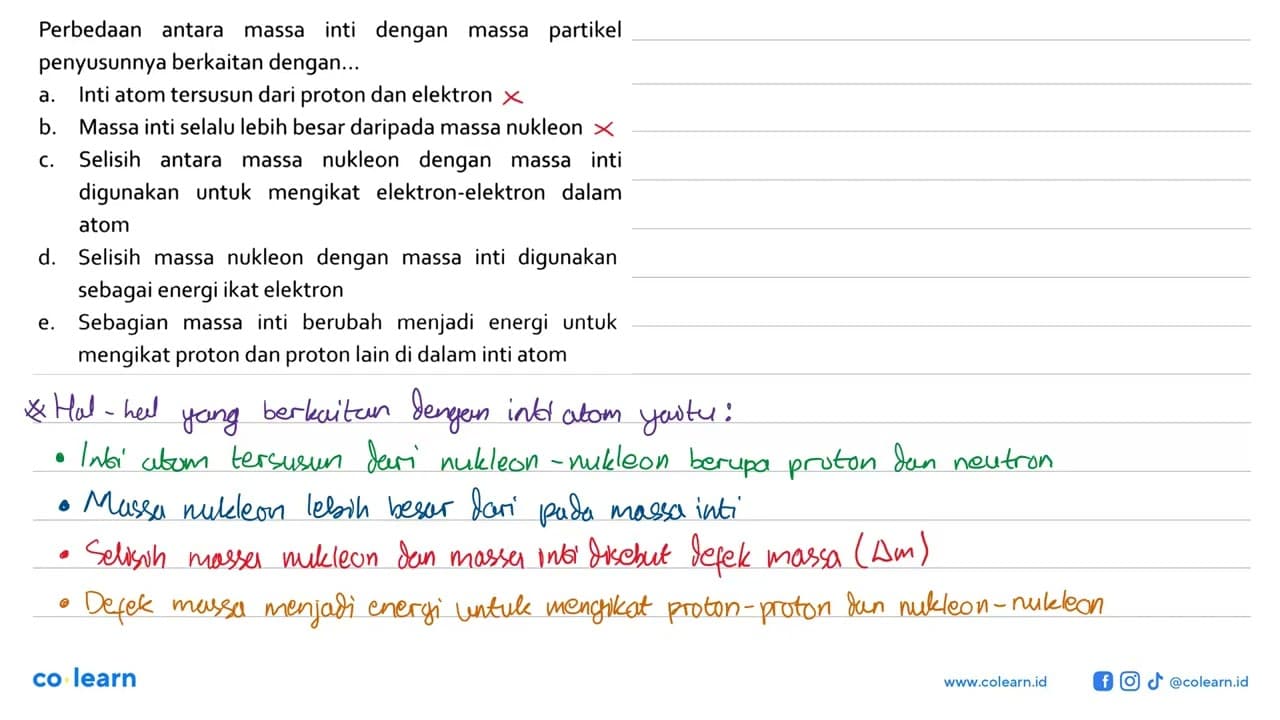 Perbedaan antara massa inti dengan massa partikel
penyusunnya berkaitan dengan...
a. Inti atom tersusun dari proton dan elektron ×
b. Massa inti selalu lebih besar daripada massa nukleon ×
c. Selisih antara massa nukleon dengan massa inti
digunakan untuk mengikat elektron-elektron dalam
atom
d. Selisih massa nukleon dengan massa inti digunakan
sebagai energi ikat elektron
e. Sebagian massa inti berubah menjadi energi untuk
mengikat proton dan proton lain di dalam inti atom
※ Hal-hal yang berkaitan dengan inti atom yaitu:
• Inti atom tersusun dari nukleon-nukleon berupa proton dan neutron
• Massa nukleon lebih besar dari pada massa inti
• Selisih massa nukleon dan massa inti disebut defek massa (Δm)
• Defek massa menjadi energi untuk mengikat proton-proton dan nukleon-nukleon
co learn
www.colearn.id
@colearn.id